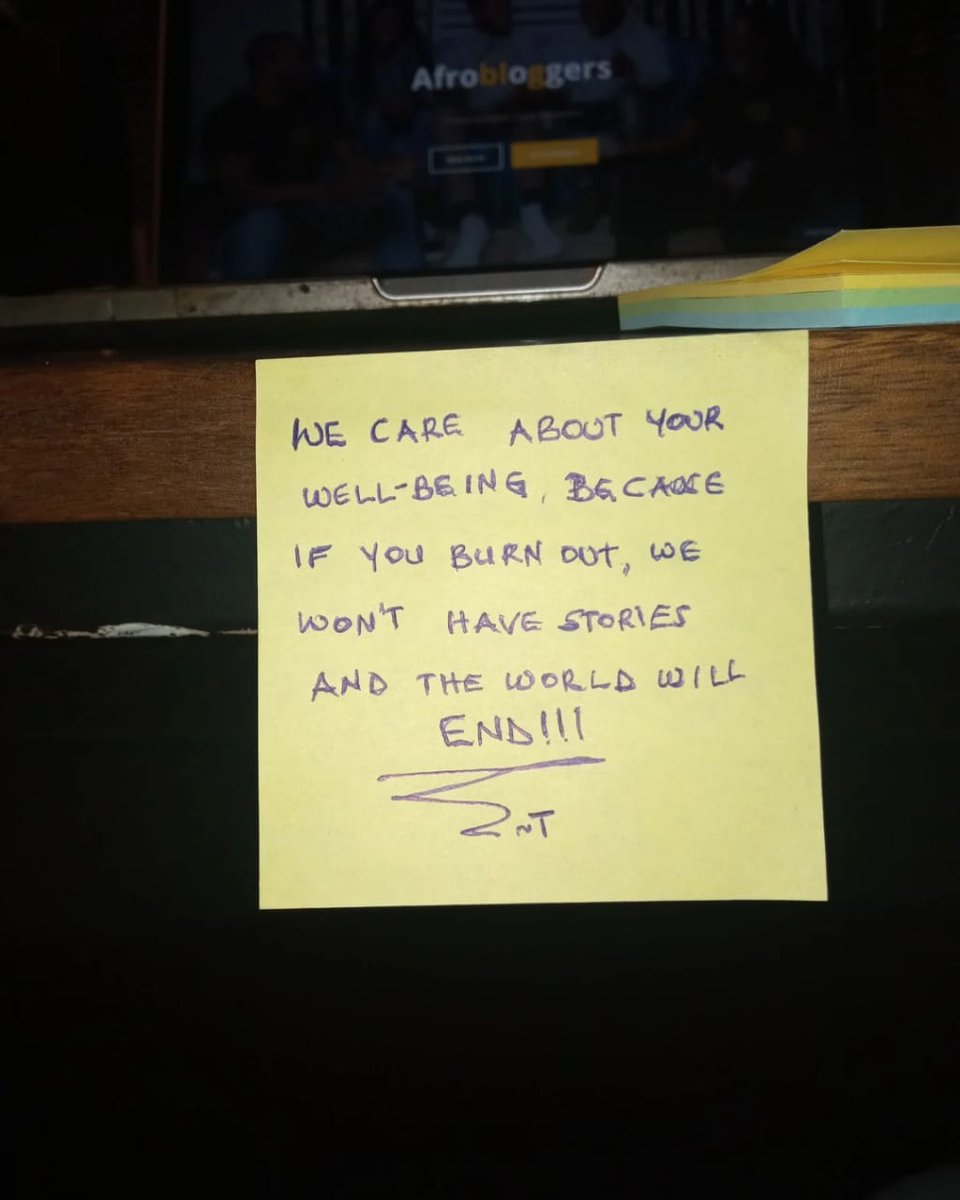 Afrobloggers
WE CARE ABOUT YOUR
WELL-BEING, BECAUSE
IF YOU BURN OUT, WE
WON'T HAVE STORIES
AND THE WORLD WILL
END!!!
~T